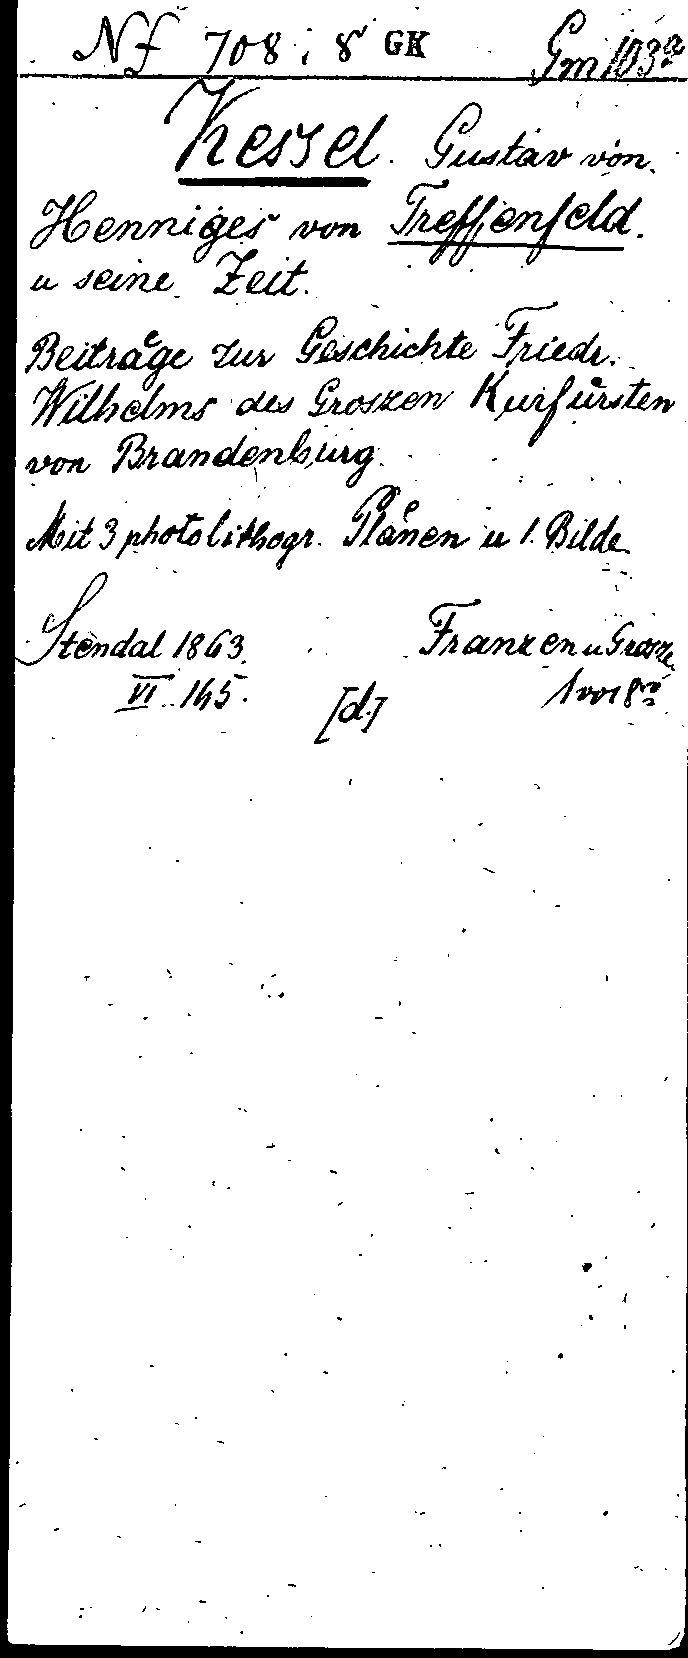 Nf 708, 8° GK Gm 103a
Kessel. Gustav von.
Henniges von Treffenfeld.
u seine Zeit.
Beiträge zur Geschichte Friedr.
Wilhelms des Groszen Kurfürsten
von Brandenburg.
Mit 3 photolithogr. Plänen u 1. Bilde
Stendal 1863. Franzen u Grosze.
VI 145. 1 vol 8vo
[d.]